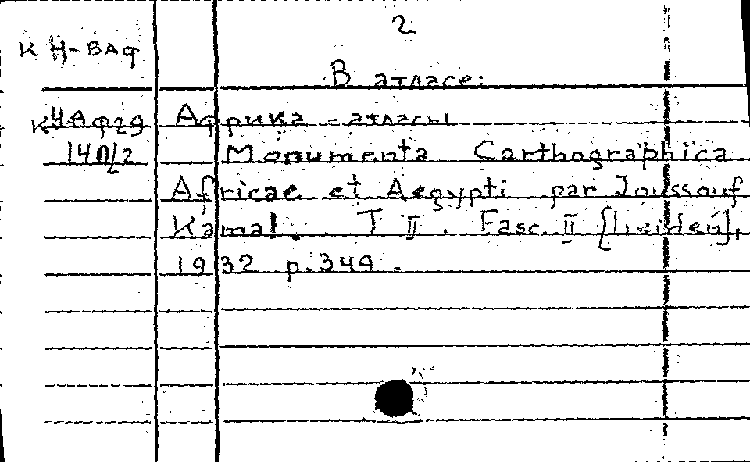 2
К Н-ВАФ
В атласе:
К4Аф29 Африка - атласы
14П/2 Monumenta Carthographica
Africae et Aegypti par Joussouf
Kamal. T II. Fasc. II [Leiden],
1932 p. 344.